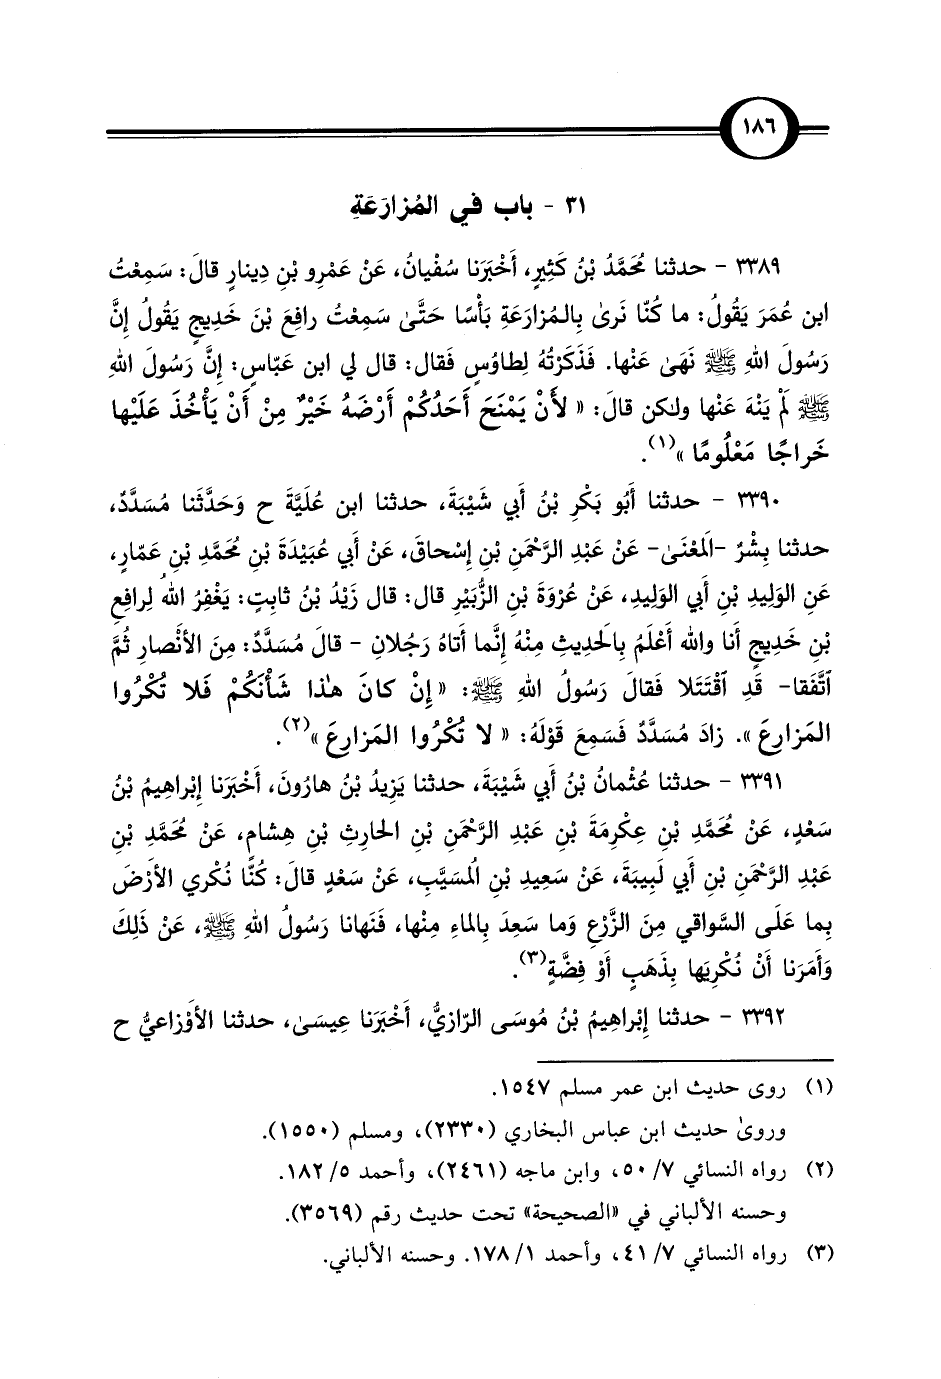 ١٨٦
٣١ - باب في المُزارَعَةِ
٣٣٨٩ - حدثنا مُحَمَّدُ بْنُ كَثِيرٍ، أَخْبَرَنا سُفْيانُ، عَنْ عَمْرِو بْنِ دِينارٍ قالَ: سَمِعْتُ
ابن عُمَرَ يَقُولُ: ما كُنّا نَرىٰ بِالمُزارَعَةِ بَأْسًا حَتَّىٰ سَمِعْتُ رافِعَ بْنَ خَدِيجٍ يَقُولُ إِنَّ
رَسُولَ اللهِ ﷺ نَهَىٰ عَنْها. فَذَكَرْتُهُ لِطاوُسٍ فَقال: قال لي ابن عَبّاسٍ: إِنَّ رَسُولَ اللهِ
ﷺ لَمْ يَنْهَ عَنْها ولكن قالَ: « لأَنْ يَمْنَحَ أَحَدُكُمْ أَرْضَهُ خَيْرٌ مِنْ أَنْ يَأْخُذَ عَلَيْها
خَراجًا مَعْلُومًا »(١).
٣٣٩٠ - حدثنا أَبُو بَكْرِ بْنُ أَبي شَيْبَةَ، حدثنا ابن عُلَيَّةَ ح وَحَدَّثَنا مُسَدَّدٌ،
حدثنا بِشْرٌ -المَعْنَىٰ- عَنْ عَبْدِ الرَّحْمَنِ بْنِ إِسْحاقَ، عَنْ أَبي عُبَيْدَةَ بْنِ مُحَمَّدِ بْنِ عَمّارٍ،
عَنِ الوَلِيدِ بْنِ أَبي الوَلِيدِ، عَنْ عُرْوَةَ بْنِ الزُّبَيْرِ قال: قال زَيْدُ بْنُ ثابِتٍ: يَغْفِرُ اللهُ لِرافِعِ
بْنِ خَدِيجٍ أَنا والله أَعْلَمُ بِالحَدِيثِ مِنْهُ إِنَّما أَتاهُ رَجُلانِ - قالَ مُسَدَّدٌ: مِنَ الأَنْصارِ ثُمَّ
ٱتَّفَقا- قَدِ ٱقْتَتَلا فَقالَ رَسُولُ اللهِ ﷺ: « إِنْ كانَ هٰذا شَأْنَكُمْ فَلا تُكْرُوا
المَزارِعَ ». زادَ مُسَدَّدٌ فَسَمِعَ قَوْلَهُ: « لا تُكْرُوا المَزارِعَ »(٢).
٣٣٩١ - حدثنا عُثْمانُ بْنُ أَبي شَيْبَةَ، حدثنا يَزِيدُ بْنُ هارُونَ، أَخْبَرَنا إِبْراهِيمُ بْنُ
سَعْدٍ، عَنْ مُحَمَّدِ بْنِ عِكْرِمَةَ بْنِ عَبْدِ الرَّحْمَنِ بْنِ الحارِثِ بْنِ هِشامٍ، عَنْ مُحَمَّدِ بْنِ
عَبْدِ الرَّحْمَنِ بْنِ أَبي لَبِيبَةَ، عَنْ سَعِيدِ بْنِ المُسَيَّبِ، عَنْ سَعْدٍ قالَ: كُنّا نُكْرِي الأَرْضَ
بِما عَلَى السَّواقي مِنَ الزَّرْعِ وَما سَعِدَ بِالماءِ مِنْها، فَنَهانا رَسُولُ اللهِ ﷺ، عَنْ ذَلِكَ
وَأَمَرَنا أَنْ نُكْرِيَها بِذَهَبٍ أَوْ فِضَّةٍ(٣).
٣٣٩٢ - حدثنا إِبْراهِيمُ بْنُ مُوسَى الرّازِيُّ، أَخْبَرَنا عِيسَىٰ، حدثنا الأَوْزاعِيُّ ح
(١) روى حديث ابن عمر مسلم ١٥٤٧.
وروىٰ حديث ابن عباس البخاري (٢٣٣٠)، ومسلم (١٥٥٠).
(٢) رواه النسائي ٧/ ٥٠، وابن ماجه (٢٤٦١)، وأحمد ٥/ ١٨٢.
وحسنه الألباني في «الصحيحة» تحت حديث رقم (٣٥٦٩).
(٣) رواه النسائي ٧/ ٤١، وأحمد ١/ ١٧٨. وحسنه الألباني.